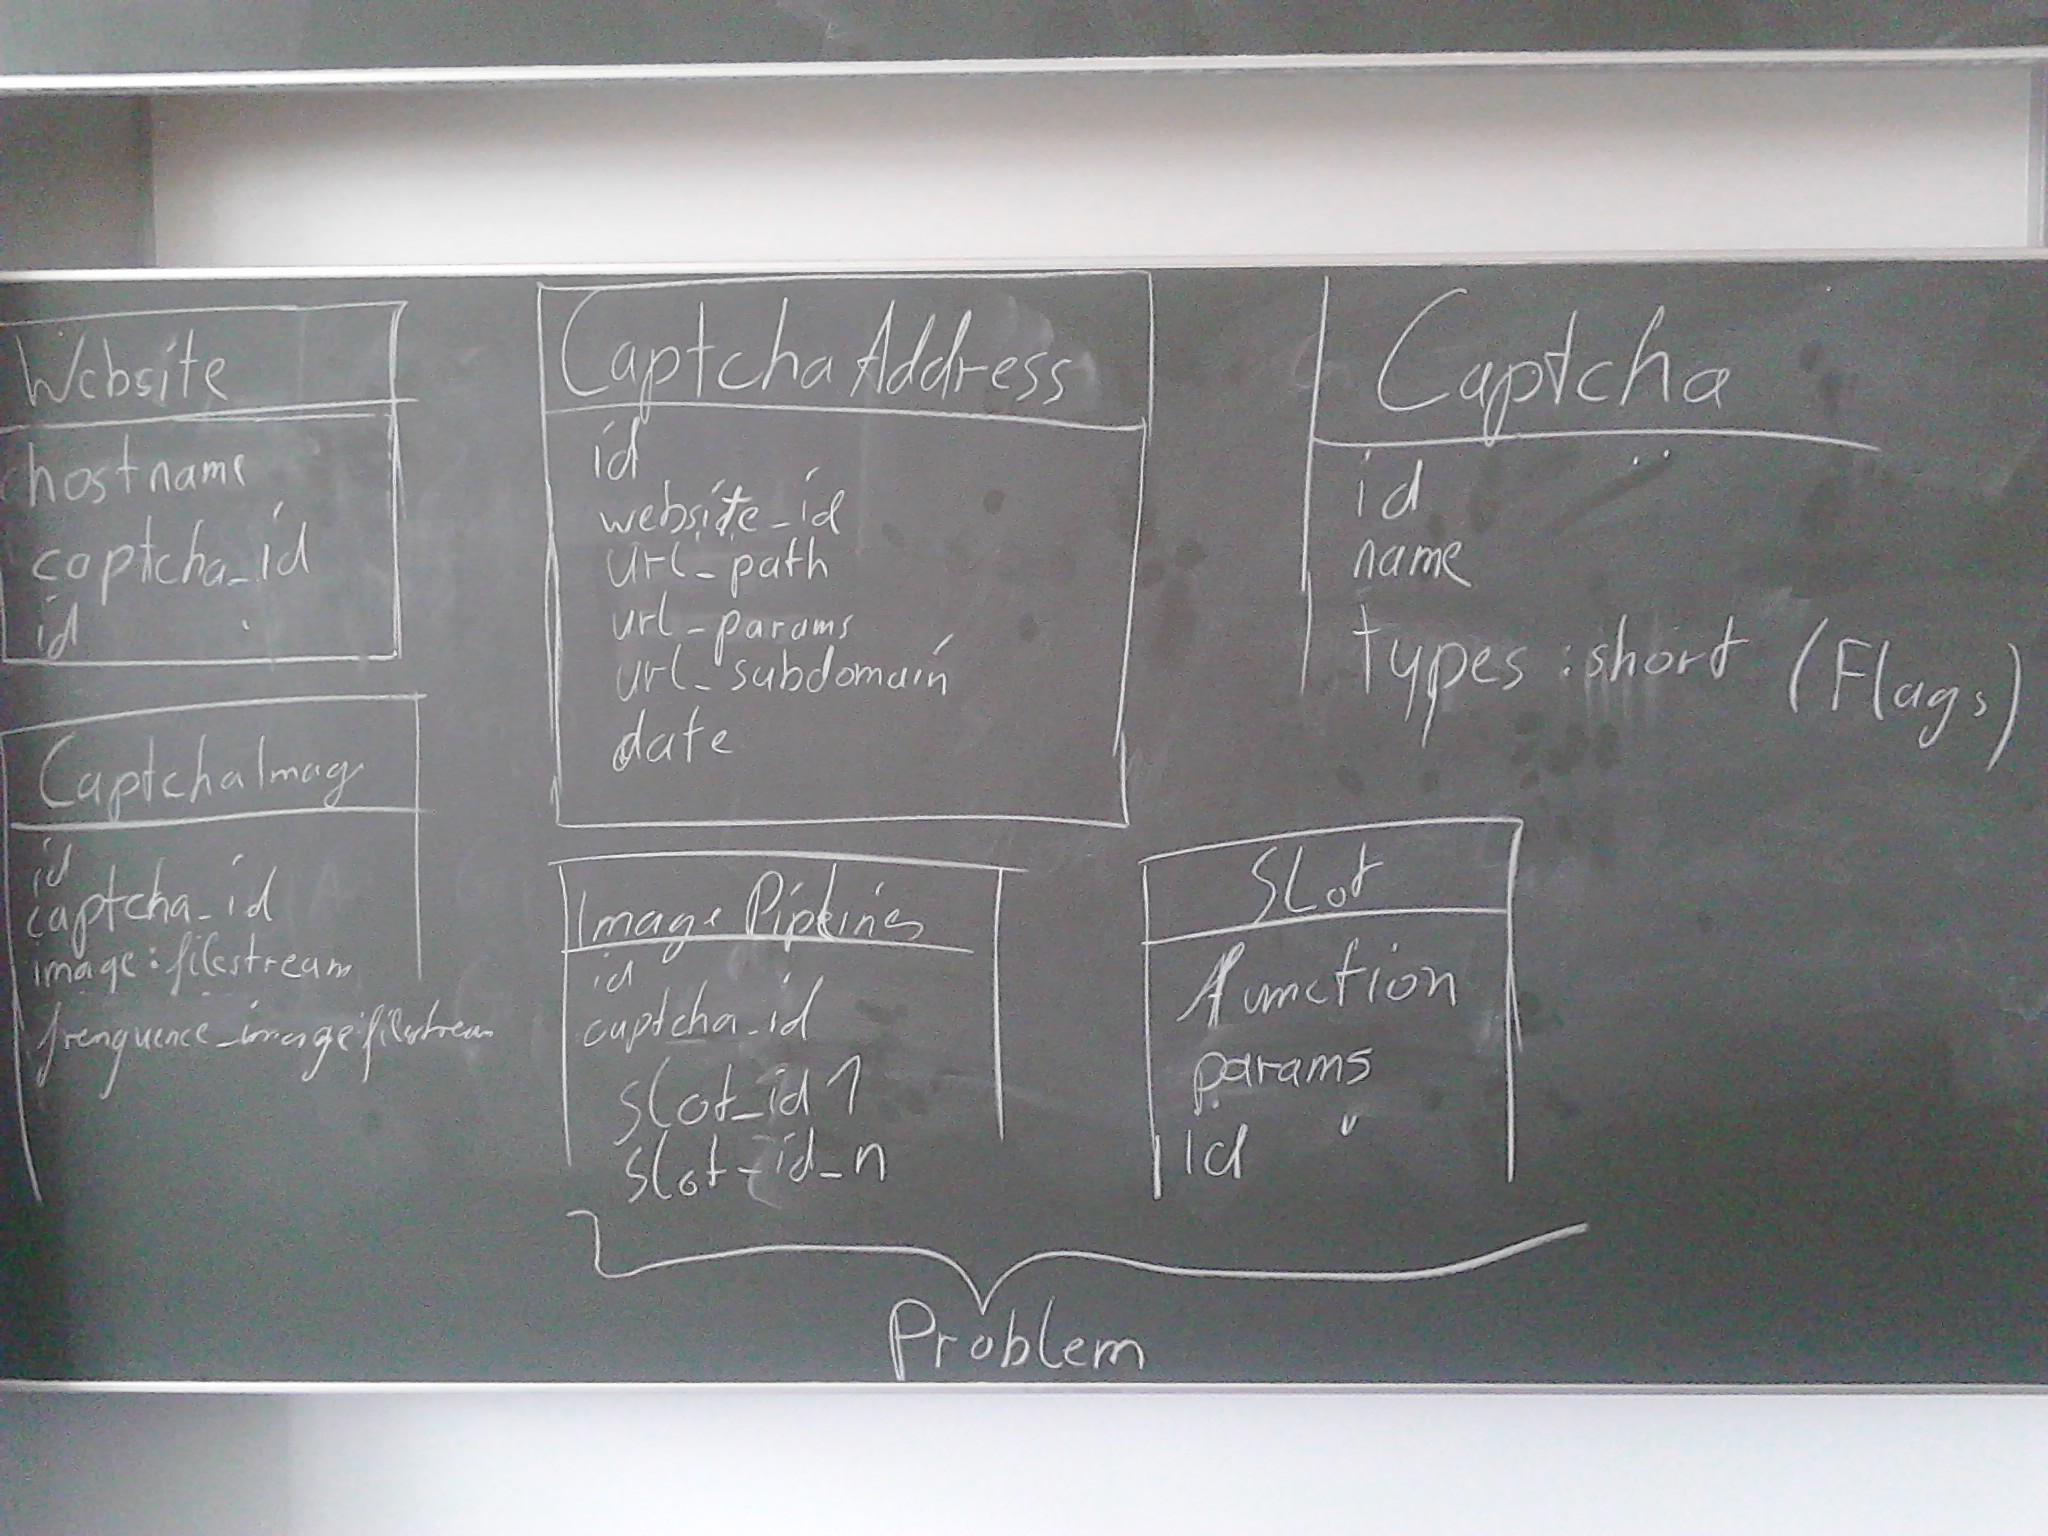 Website
hostname
captcha_id
id
CaptchaAddress
id
website_id
url_path
url_params
url_subdomain
date
Captcha
id
name
types : short (Flags)
CaptchaImag
id
captcha_id
image : filestream
frenquence_image:filestream
Image Piplines
id
captcha_id
slot_id 1
slot_id_n
Slot
function
params
id
Problem